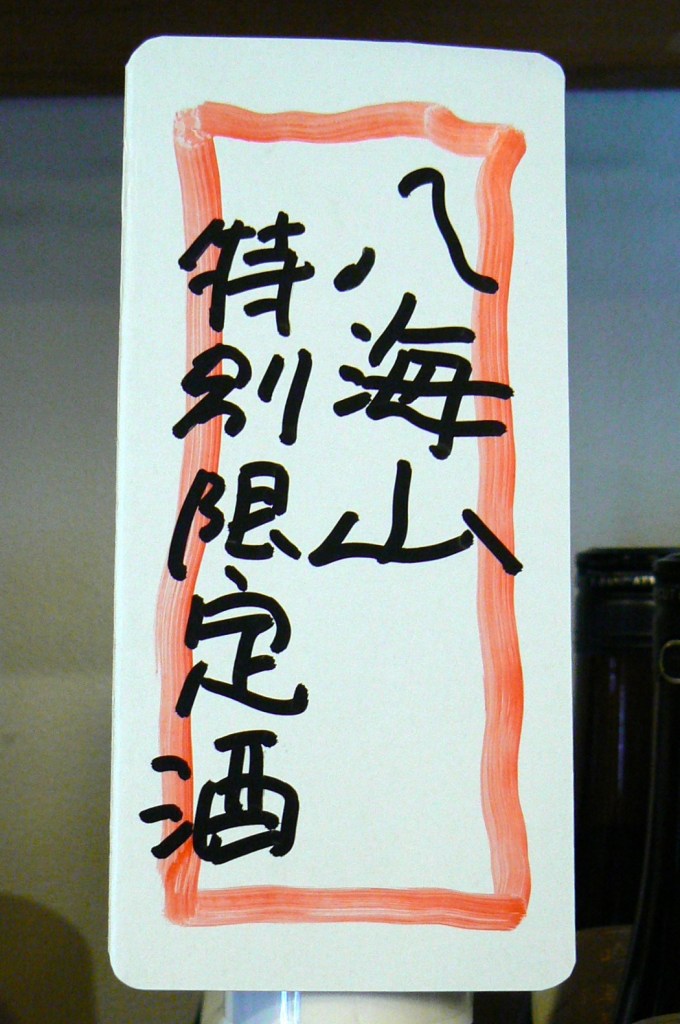 八海山
特別限定酒